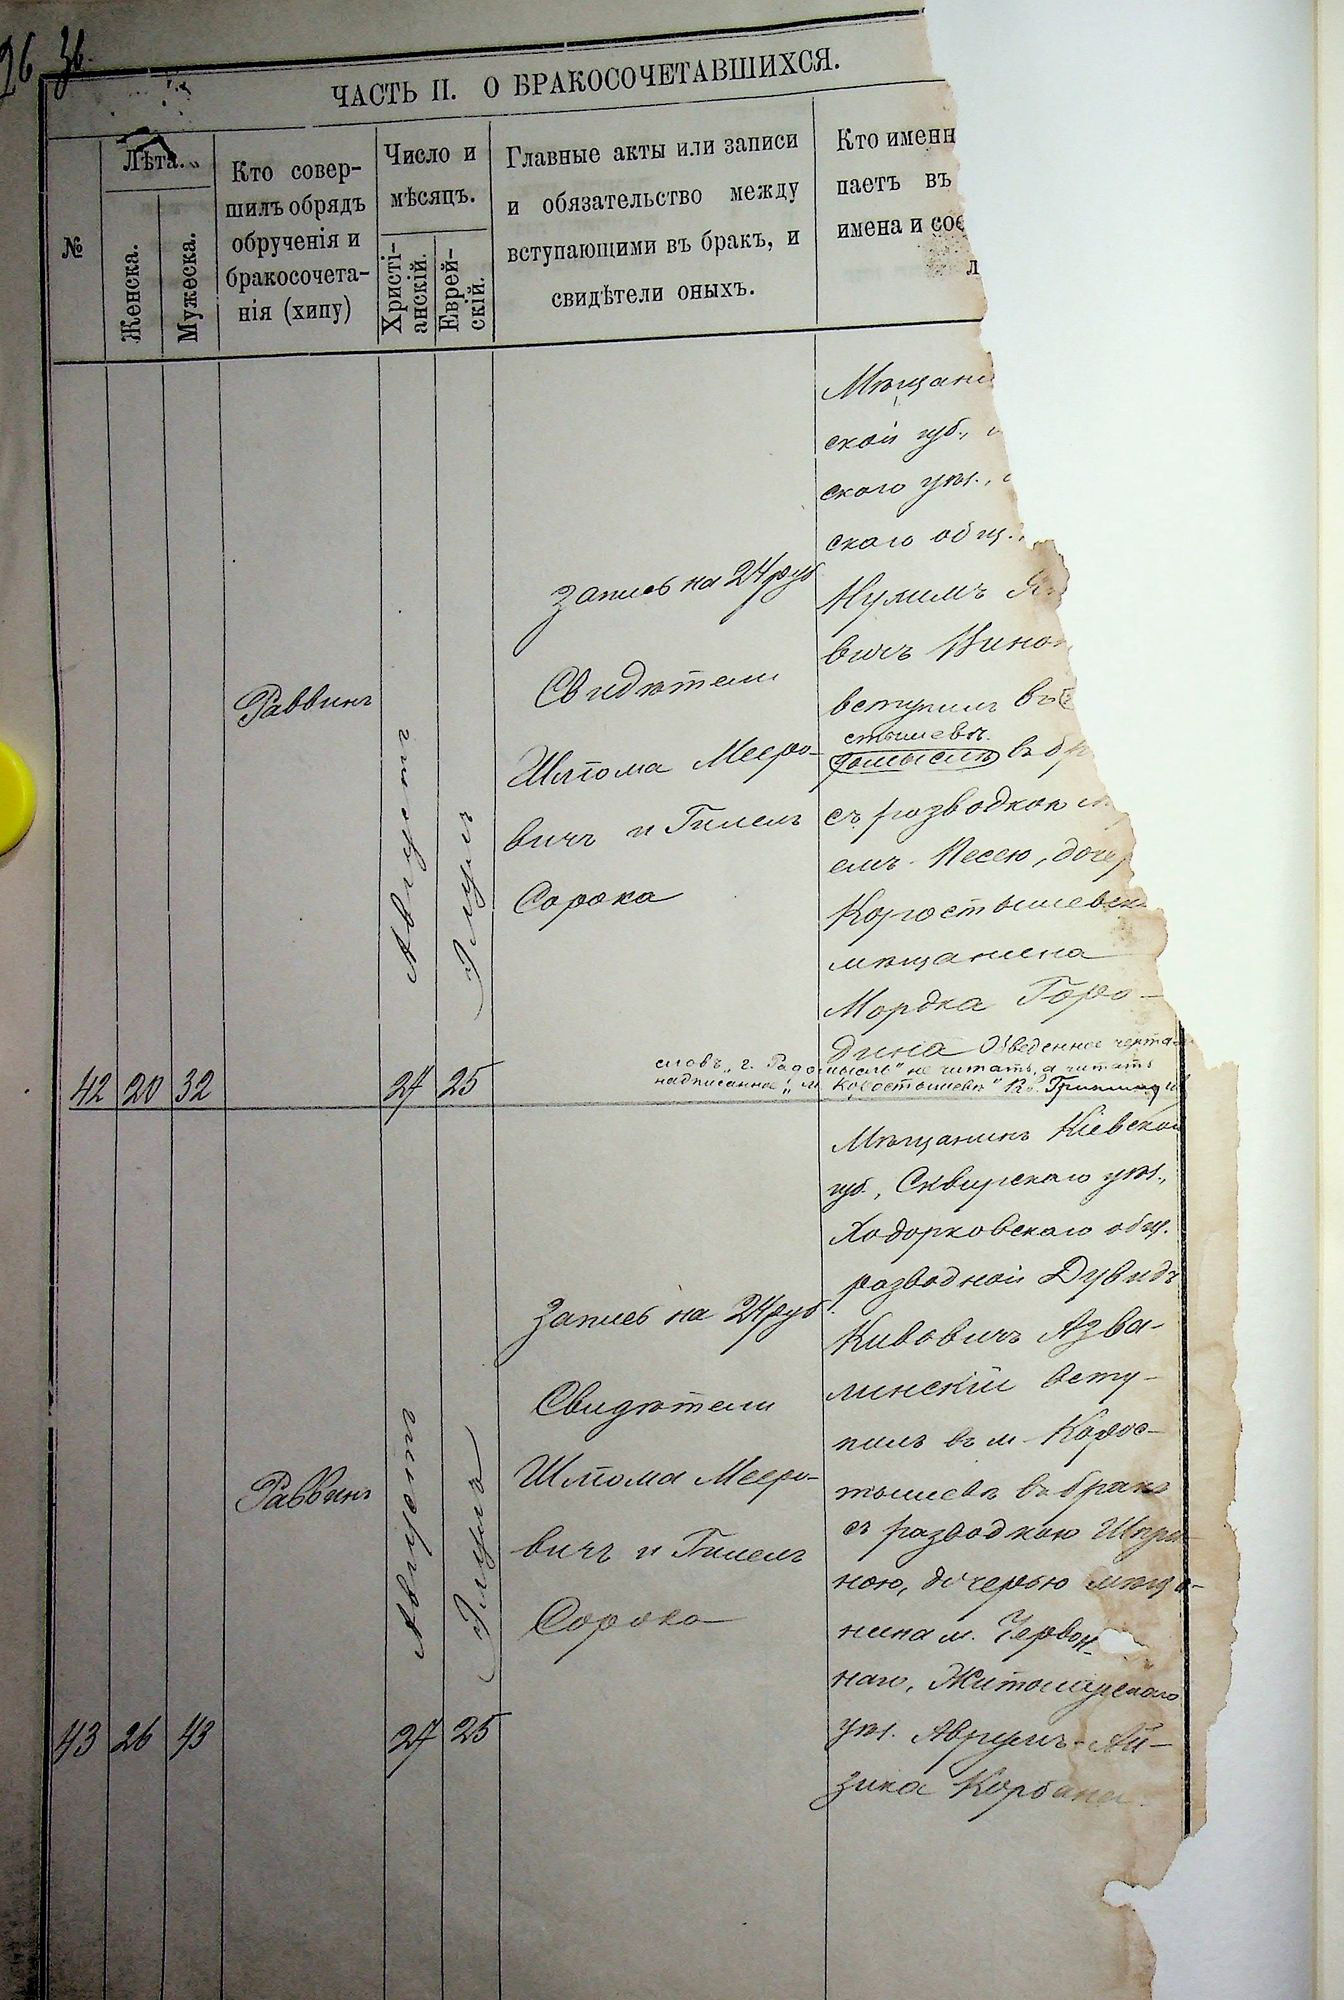 26 36.
ЧАСТЬ II. О БРАКОСОЧЕТАВШИХСЯ.
№
Лѣта.
Женска.
Мужеска.
Кто совер-
шилъ обрядъ
обрученія и
бракосочета-
нія (хипу)
Число и
мѣсяцъ.
Христі-
анскій.
Еврей-
скій.
Главные акты или записи
и обязательство между
вступающими въ бракъ, и
свидѣтели оныхъ.
Кто именн
паетъ въ
имена и сос
42
20
32
Раввинъ
Августъ
27
Элулъ
25
Запись на 24 руб
Свидѣтели
Шлiома Мееро-
вичъ и Гилелъ
Сорока
Мѣщани
ской губ.,
ского уѣз.,
ского общ.,
Нухимъ
вичъ Вино
вступилъ въ
стышевѣ.
домыслѣ въ бр
съ разводкою
емъ Песею, дочер
Коростышевск
мѣщанина
Мордка Горо-
дина Обведенное черта
словъ „г. Радомыслъ" не читать, а читать
надписанное: „м. Коростышевѣ"
43
26
43
Раввинъ
Августъ
27
Элулъ
25
Запись на 24 руб.
Свидѣтели
Шлiома Мееро-
вичъ и Гилелъ
Сорока
Мѣщанинъ Кіевской
губ., Сквирскаго уѣз.,
Ходорковскаго общ.
разводной Дувидъ
Кивовичъ Азва-
линскій всту-
пилъ въ м. Корос-
тышевѣ въ бракъ
съ разводкою Шпри-
ною, дочерью мѣща-
нина м. Червон-
наго, Житомирскаго
уѣз. Аврумъ-Ай-
зика Корбана.